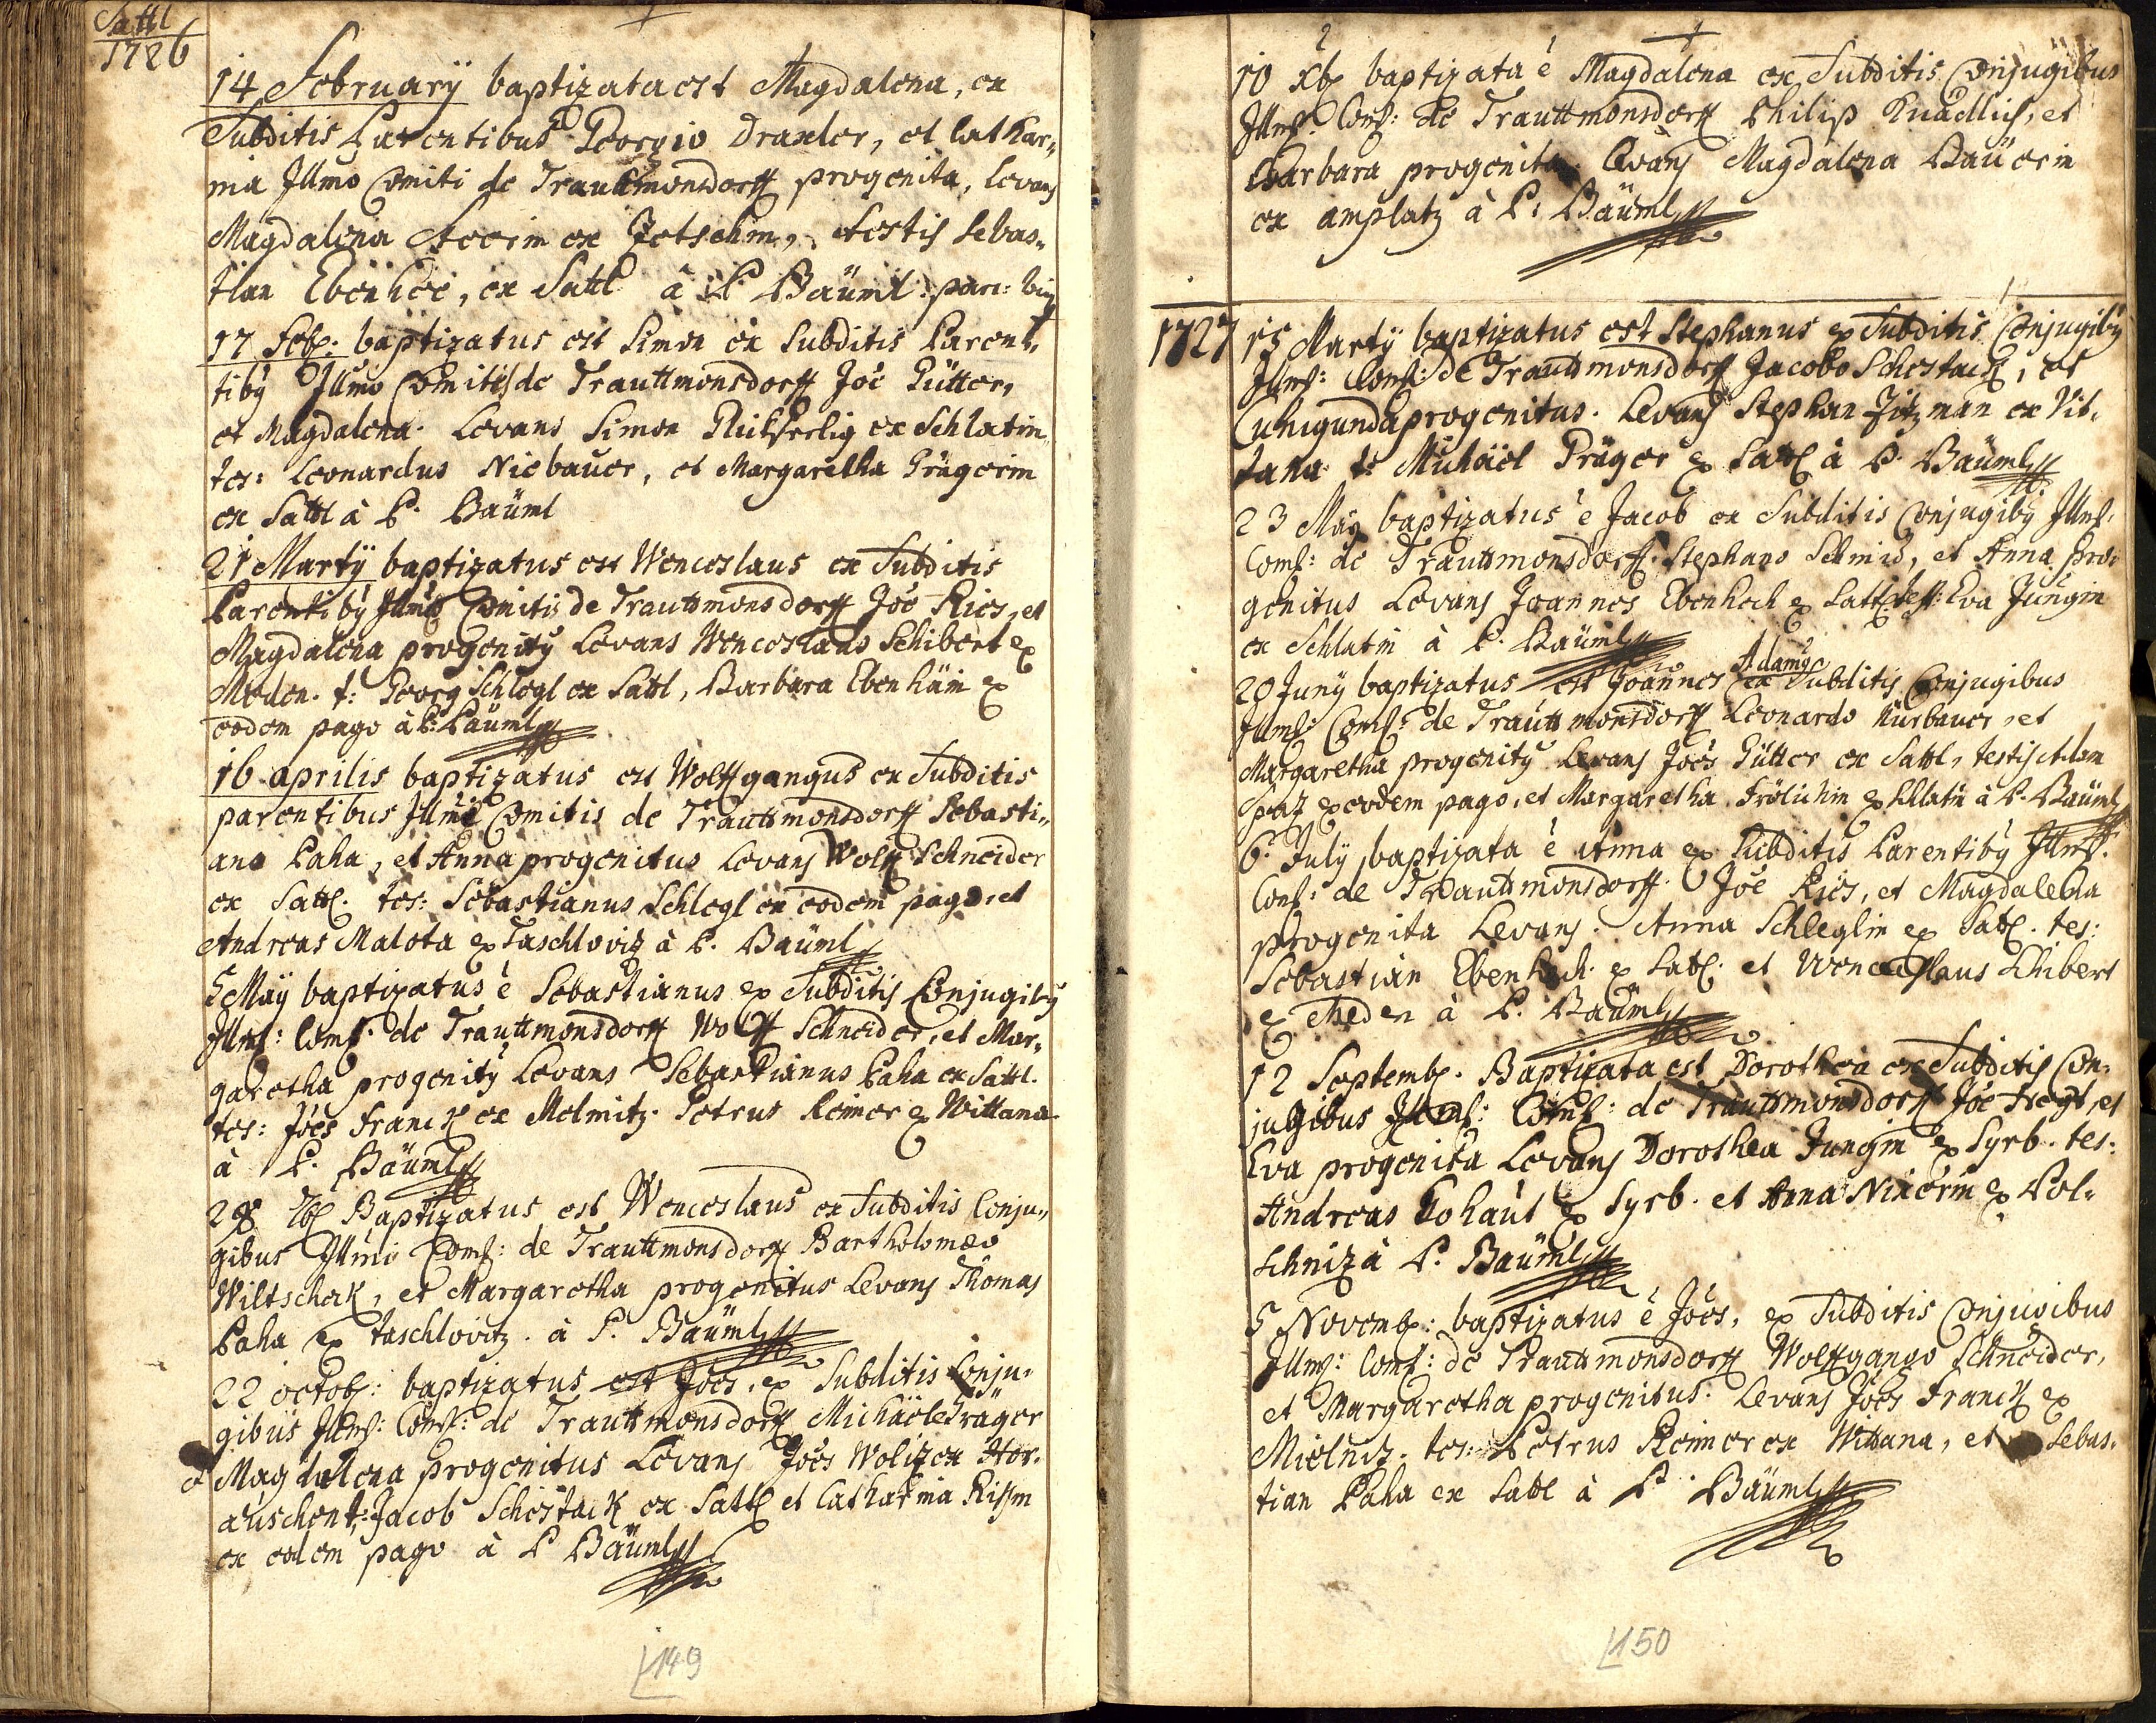 Sattl
1726
14 February baptizata est Magdalena, ex
Subditis Parentibus Georgio Draxler, et Cathar„
ina Illmo Comiti de Trauttmonsdorff progenita, Levans
Magdalena ex Jetschin, testis Sebas„
tian Ebenhöe, ex Sattl à P. Bäuml
17 Feb: baptizatus est Simon ex Subditis Parent„
tibȳ Illmo Comitis de Trauttmonsdorff Joē Gütter,
et Magdalena. Levans Simon ex Schlatin
tes: Leonardus Niebauer, et Margaretha Prügerin
ex Sattl à P. Bäuml
21 Martÿ baptizatus est Wenceslaus ex Subditis
Parentibȳ Illmi Comitis de Trauttmonsdorff Joē Ries, et
Magdalena progenitȳ Levans Wenceslaus Schibert ex
Meden. t: Georg Schlegl ex Sattl, Barbara Ebenhäin ex
eodem pago à P. Bäuml
16 aprilis baptizatus est Wolffgangus ex Subditis
parentibus Illmi Comitis de Trauttmonsdorff Sebasti„
ano Paha, et Anna progenitus Levans Wolff Schneider
ex Sattl. tes: Sebastianus Schlegl ex eodem pago, et
Andreas Malota ex Taschlovitz à P. Bäuml
5 Maÿ baptizatus ē Sebastianus ex Subditis Conjugibȳ
Illms: Coms: de Trauttmonsdorff Wolff Schneider, et Mar„
garetha progenitȳ Levans Sebastianus Paha ex Sattl.
tes: Joēs Franck ex Melmitz. Petrus Reimer ex Wittana
à P. Bäuml
28 7b Baptizatus est Wenceslaus ex Subditis Conju„
gibus Illmi Coms: de Trauttmonsdorff Bartholomæo
Wiltscheck, et Margaretha progenitus Levans Thomas
Paha ex Taschlovitz. à P. Bäuml
22 octob: baptizatus est Joēs, ex Subditis Conju„
gibus Illms: Coms: de Trauttmonsdorff Michäele Präger
et Magdalena progenitus Levans Joēs Wolf ex Hor„
auschen t: Jacob Schestack ex Sattl et Catharina Rissin
ex eodem pago à P Bäuml
149
10 xb baptizata ē Magdalena ex Subditis Conjugibus
Illms: Coms: de Trauttmonsdorff Philip Knädlich, et
Barbara progenita Levans Magdalena Bäuerin
ex amplatz à P: Bäuml
1727
15 Martÿ baptizatus est Stephanus ex Subditis Conjugibȳ
Illms: Coms: de Trauttmonsdorff Jacobo Schestack, et
Cunigunda progenitus. Levans Stephan Fitzman ex Vit„
tana t: Michäel Präger ex Sattl à P. Bäuml
23 Maÿ baptizatus ē Jacob ex Subditis Conjugibȳ Illms:
Coms: de Trauttmonsdorff. Stephano Schmid, et Anna pro„
genitus Levans Joannes Ebenhech ex Sattl test: Eva Jungin
ex Schlatin à P. Bäuml
Adamȳ
20 Junÿ baptizatus est Joannes ex Subditis Conjugibus
Illms: Coms: de Trauttmonsdorff Leonardo Kürbauer, et
Margaretha progenitȳ Levans Joēs Gütter ex Sattl, testis Adam
Spaz ex eodem pago, et Margaretha Frölichin ex Schlatin à P. Bäuml
6. Julÿ baptizata ē Anna ex Subditis Parentibȳ Illms:
Coms: de Trauttmonsdorff. Joē Ries, et Magdalena
progenita Levans. Anna Schleglin ex Sattl. tes:
Sebastian Ebenhech ex Sattl. et Wenceslaus Schibert
ex Meden à P. Bäuml
12 Septemb. Baptizata est Dorothea ex Subditis Con„
jugibus Illms: Coms: de Trauttmonsdorff Joē et
Eva progenita Levans Dorothea Jungin ex Syrb. tes:
Andreas Kohaut ex Syrb. et Anna Nixerin ex Pol„
schniz à P. Bäuml
5 Novemb: baptizatus ē Joēs, ex Subditis Conjugibus
Illms: Coms: de Trauttmonsdorff Wolffgango Schneider,
et Margaretha progenitus. Levans Joēs Franck ex
Mielnitz. tes: Petrus Reimer ex Wittana, et Sebas„
tian Paha ex Sattl à P. Bäuml
150